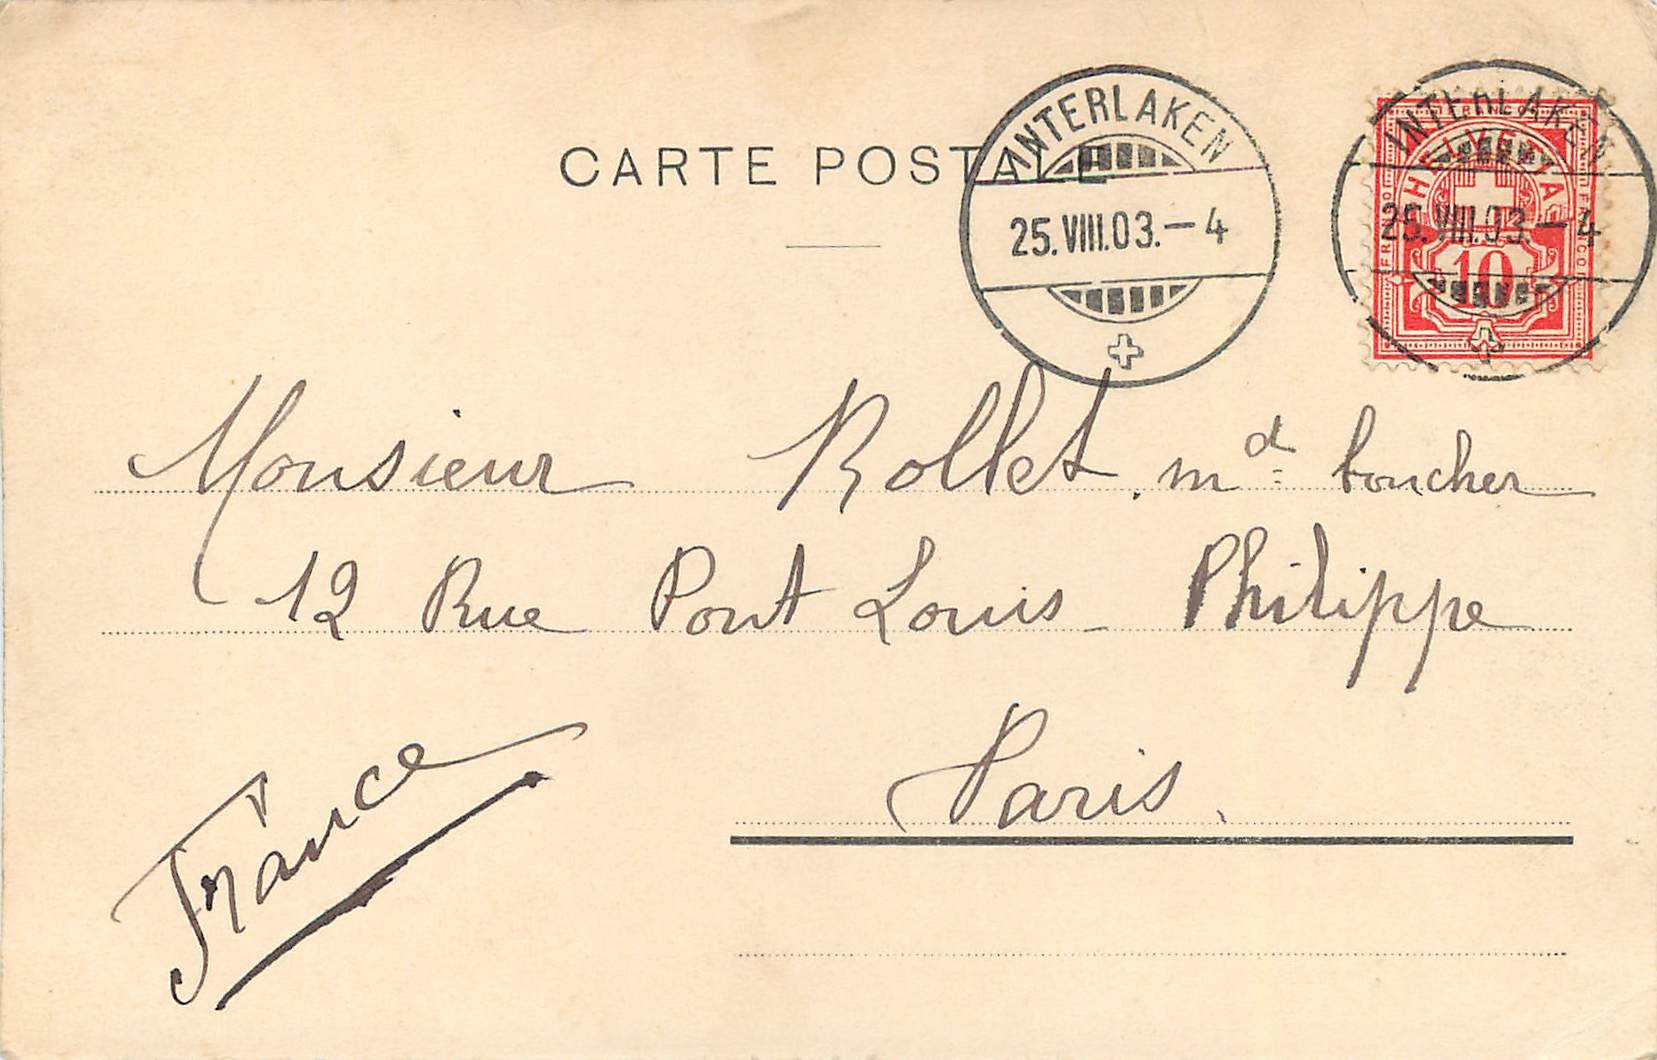 CARTE POSTALE
INTERLAKEN
25.VIII.03.–4
INTERLAKEN
25.VIII.03.–4
HELVETIA
FRANCO
FRANCO
FRANCO
10
Monsieur Rollet. md: boucher
12 Rue Pont Louis-Philippe
Paris.
France